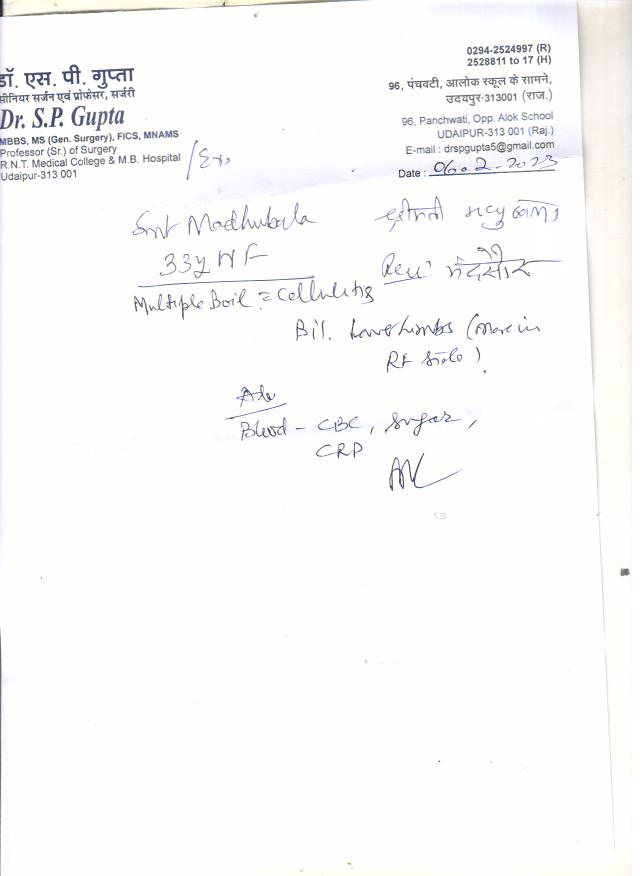 डॉ. एस. पी. गुप्ता
सीनियर सर्जन एवं प्रोफेसर, सर्जरी
Dr. S.P. Gupta
MBBS, MS (Gen. Surgery), FICS, MNAMS
Professor (Sr.) of Surgery
R.N.T. Medical College & M.B. Hospital
Udaipur-313 001
/Ex.
0294-2524997 (R)
2528811 to 17 (H)
96, पंचवटी, आलोक स्कूल के सामने,
उदयपुर-313001 (राज.)
96, Panchwati, Opp. Alok School
UDAIPUR-313 001 (Raj.)
E-mail : drspgupta5@gmail.com
Date : 06.2.2023
Smt Madhubala श्रीमती मधु बाला
33y HF मंदसौर
Multiple Boil = Cellulitis
Bil. Lower Limbs (More in
Rt side).
Adv
Blood - CBC, Sugar,
CRP